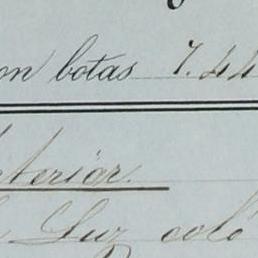 on botas 7.44
terior.
Luz coló